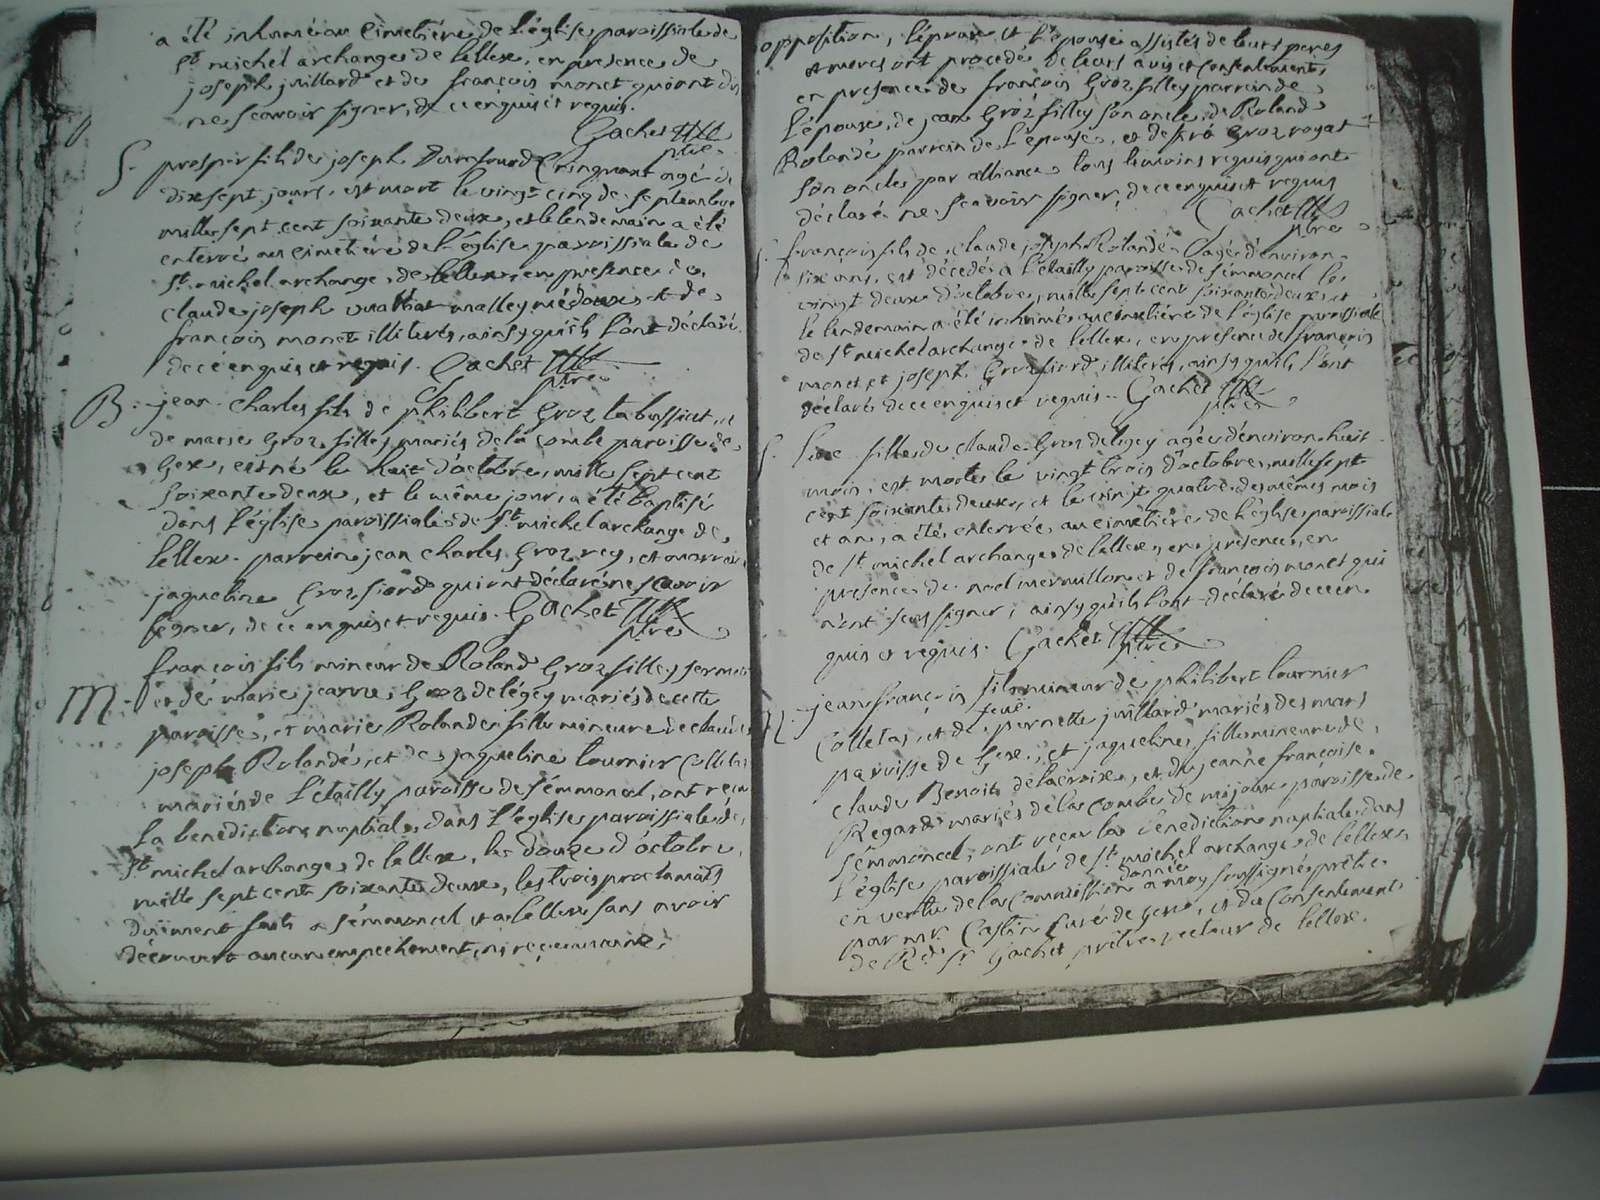 a été inhumé au Cimetière de l'église paroissiale de
St michel archange de lellex, en presence de
joseph juillard et de françois monet qui ont dis
ne scavoir signer, de ce enquis et requis.
Gachet
ptre
S. prosper fils de joseph agé de
dix sept jours, est mort le vingt cinq de septembre
mille sept cent soixante deux, et le lendemain a été
enterré au cimetière de l'église paroissiale de
St michel archange de lellex, en presence de
claude joseph et de
françois monet illiterés, ainsy qu'ils l'ont déclaré
de ce enquis et requis. Gachet
ptre
B. jean charles fils de philibert Groz
de marie Groz filley mariés de la combe paroisse de
Gex, est né le huit d'octobre, mille sept cent
soixante deux, et le même jour, a été baptisé
dans l'église paroissiale de St michel archange de
lellex. parrein jean charles Groz rey, et marreine
jaqueline Groz fiord qui ont déclaré ne scavoir
signer, de ce enquis et requis. Gachet
ptre
françois fils mineur de Roland Groz filley
M. et de marie jeanne Groz delégey mariés de cette
paroisse, et marie Rolande fille mineure de claude
joseph Rolandé, et de jaqueline tournier Colletas
mariés de L'étailly paroisse de sémoncel, ont reçu
la benediction nuptiale, dans l'église paroissiale de
St michel archange de lellex, le douze d'octobre,
mille sept cent soixante deux, les trois proclamats
düement faits a sémoncel et a lellex sans avoir
découvert aucun empechement, ni reçu aucune
opposition, l'époux et l'épouse assistés de leurs peres
et meres ont procedé de leurs avis et consentements,
en presence de françois Groz filley parrein de
l'époux, de jean Groz filley son oncle, de Roland
Rolandé parrein de l'épouse, et de Groz royat
son oncle par alliance, tous temoins requis qui ont
déclaré ne scavoir signer, de ce enquis et requis
Gachet
ptre
S. françois fils de claude joseph Rolandé agé d'environ
six ans, est décedé a l'étailly paroisse de sémoncel le
vingt deux d'octobre, mille sept cent soixante deux, et
le lendemain a été inhumé au cimetière de l'église paroissiale
de St michel archange de lellex, en presence de françois
monet et joseph Groz fiord illiterés, ainsy qu'ils l'ont
déclaré de ce enquis et requis. Gachet
ptre
S. fille de claude Groz delegey agée d'environ huit
mois, est morte le vingt trois d'octobre, mille sept
cent soixante deux, et le vingt quatre des mêmes mois
et an, a été enterrée au cimetière de l'église paroissiale
de St michel archange de lellex, en presence, en
presence de noel mermillon et de françois monet qui
n'ont sceu signer, ainsy qu'ils l'ont déclaré de ce en
quis et requis. Gachet
ptre
jean françois fils mineur de philibert tournier
feue
Colletas, et de pernette juillard mariés des mars
paroisse de Gex, et jaqueline fille mineure de
claude Benoit delacroix, et de jeanne françoise
Regard mariés de la combe de mijoux paroisse de
sémoncel, ont reçu la benediction nuptiale dans
l'église paroissiale de St michel archange de lellex,
donnée
en vertu de la commission a moy soussigné prêtre
par mr Castin curé de Gex, et du consentement
de Rd Sr Gachet prêtre recteur de lellex.